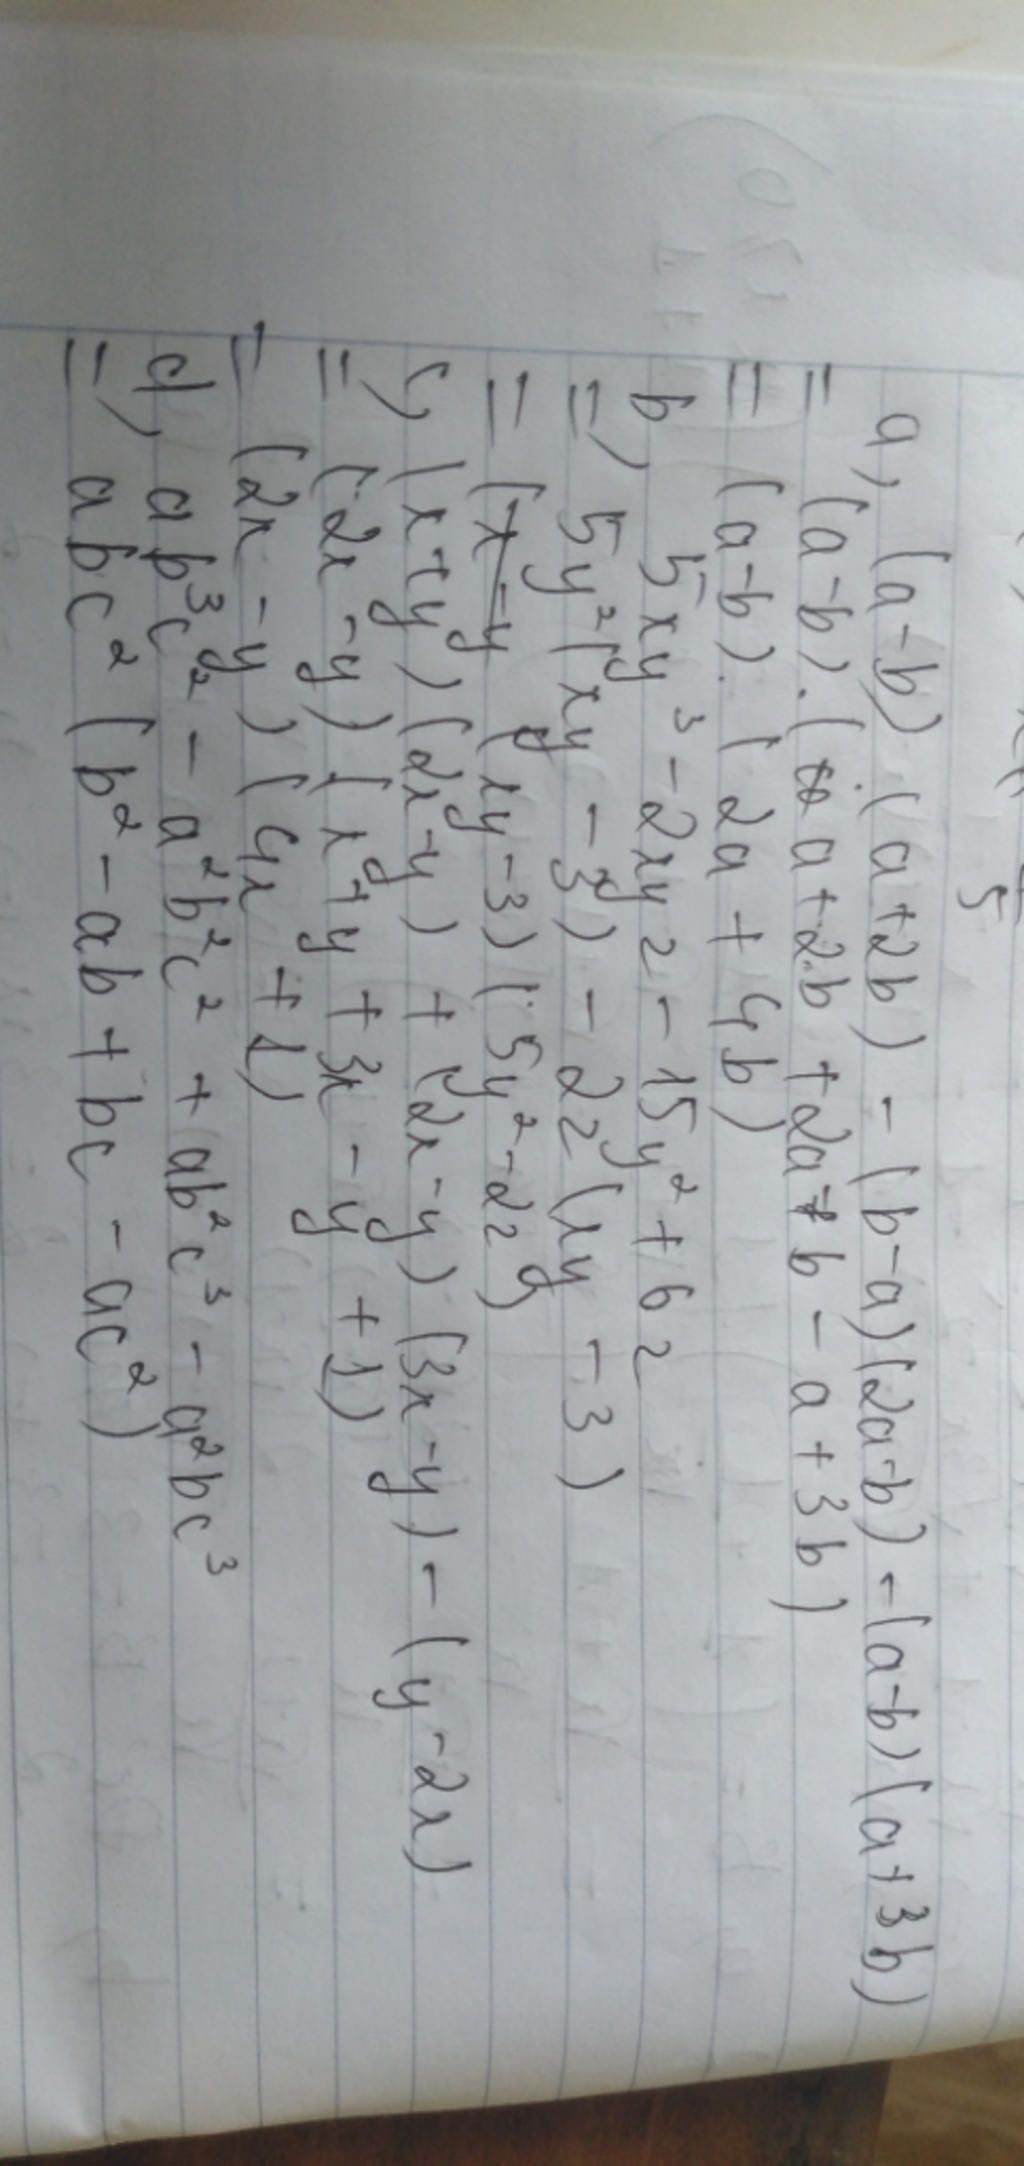 5
a, (a-b).(a+2b) - (b-a)(2a-b) - (a-b)(a+3b)
= (a-b).(a+2b +2a-b - a+3b)
= (a-b).(2a + 4b)
b, 5xy³ - 2xyz - 15y² + 6z
= 5y²(xy - 3) - 2z(xy - 3)
= (xy-3)(5y²-2z)
c, (x+y)(2x-y) + (2x-y)(3x-y) - (y-2x)
= (2x-y)(x+y + 3x - y + 1)
= (2x - y)(4x + 1)
d, ab³c² - a²b²c² + ab²c³ - a²bc³
= abc²(b² - ab + bc - ac²)